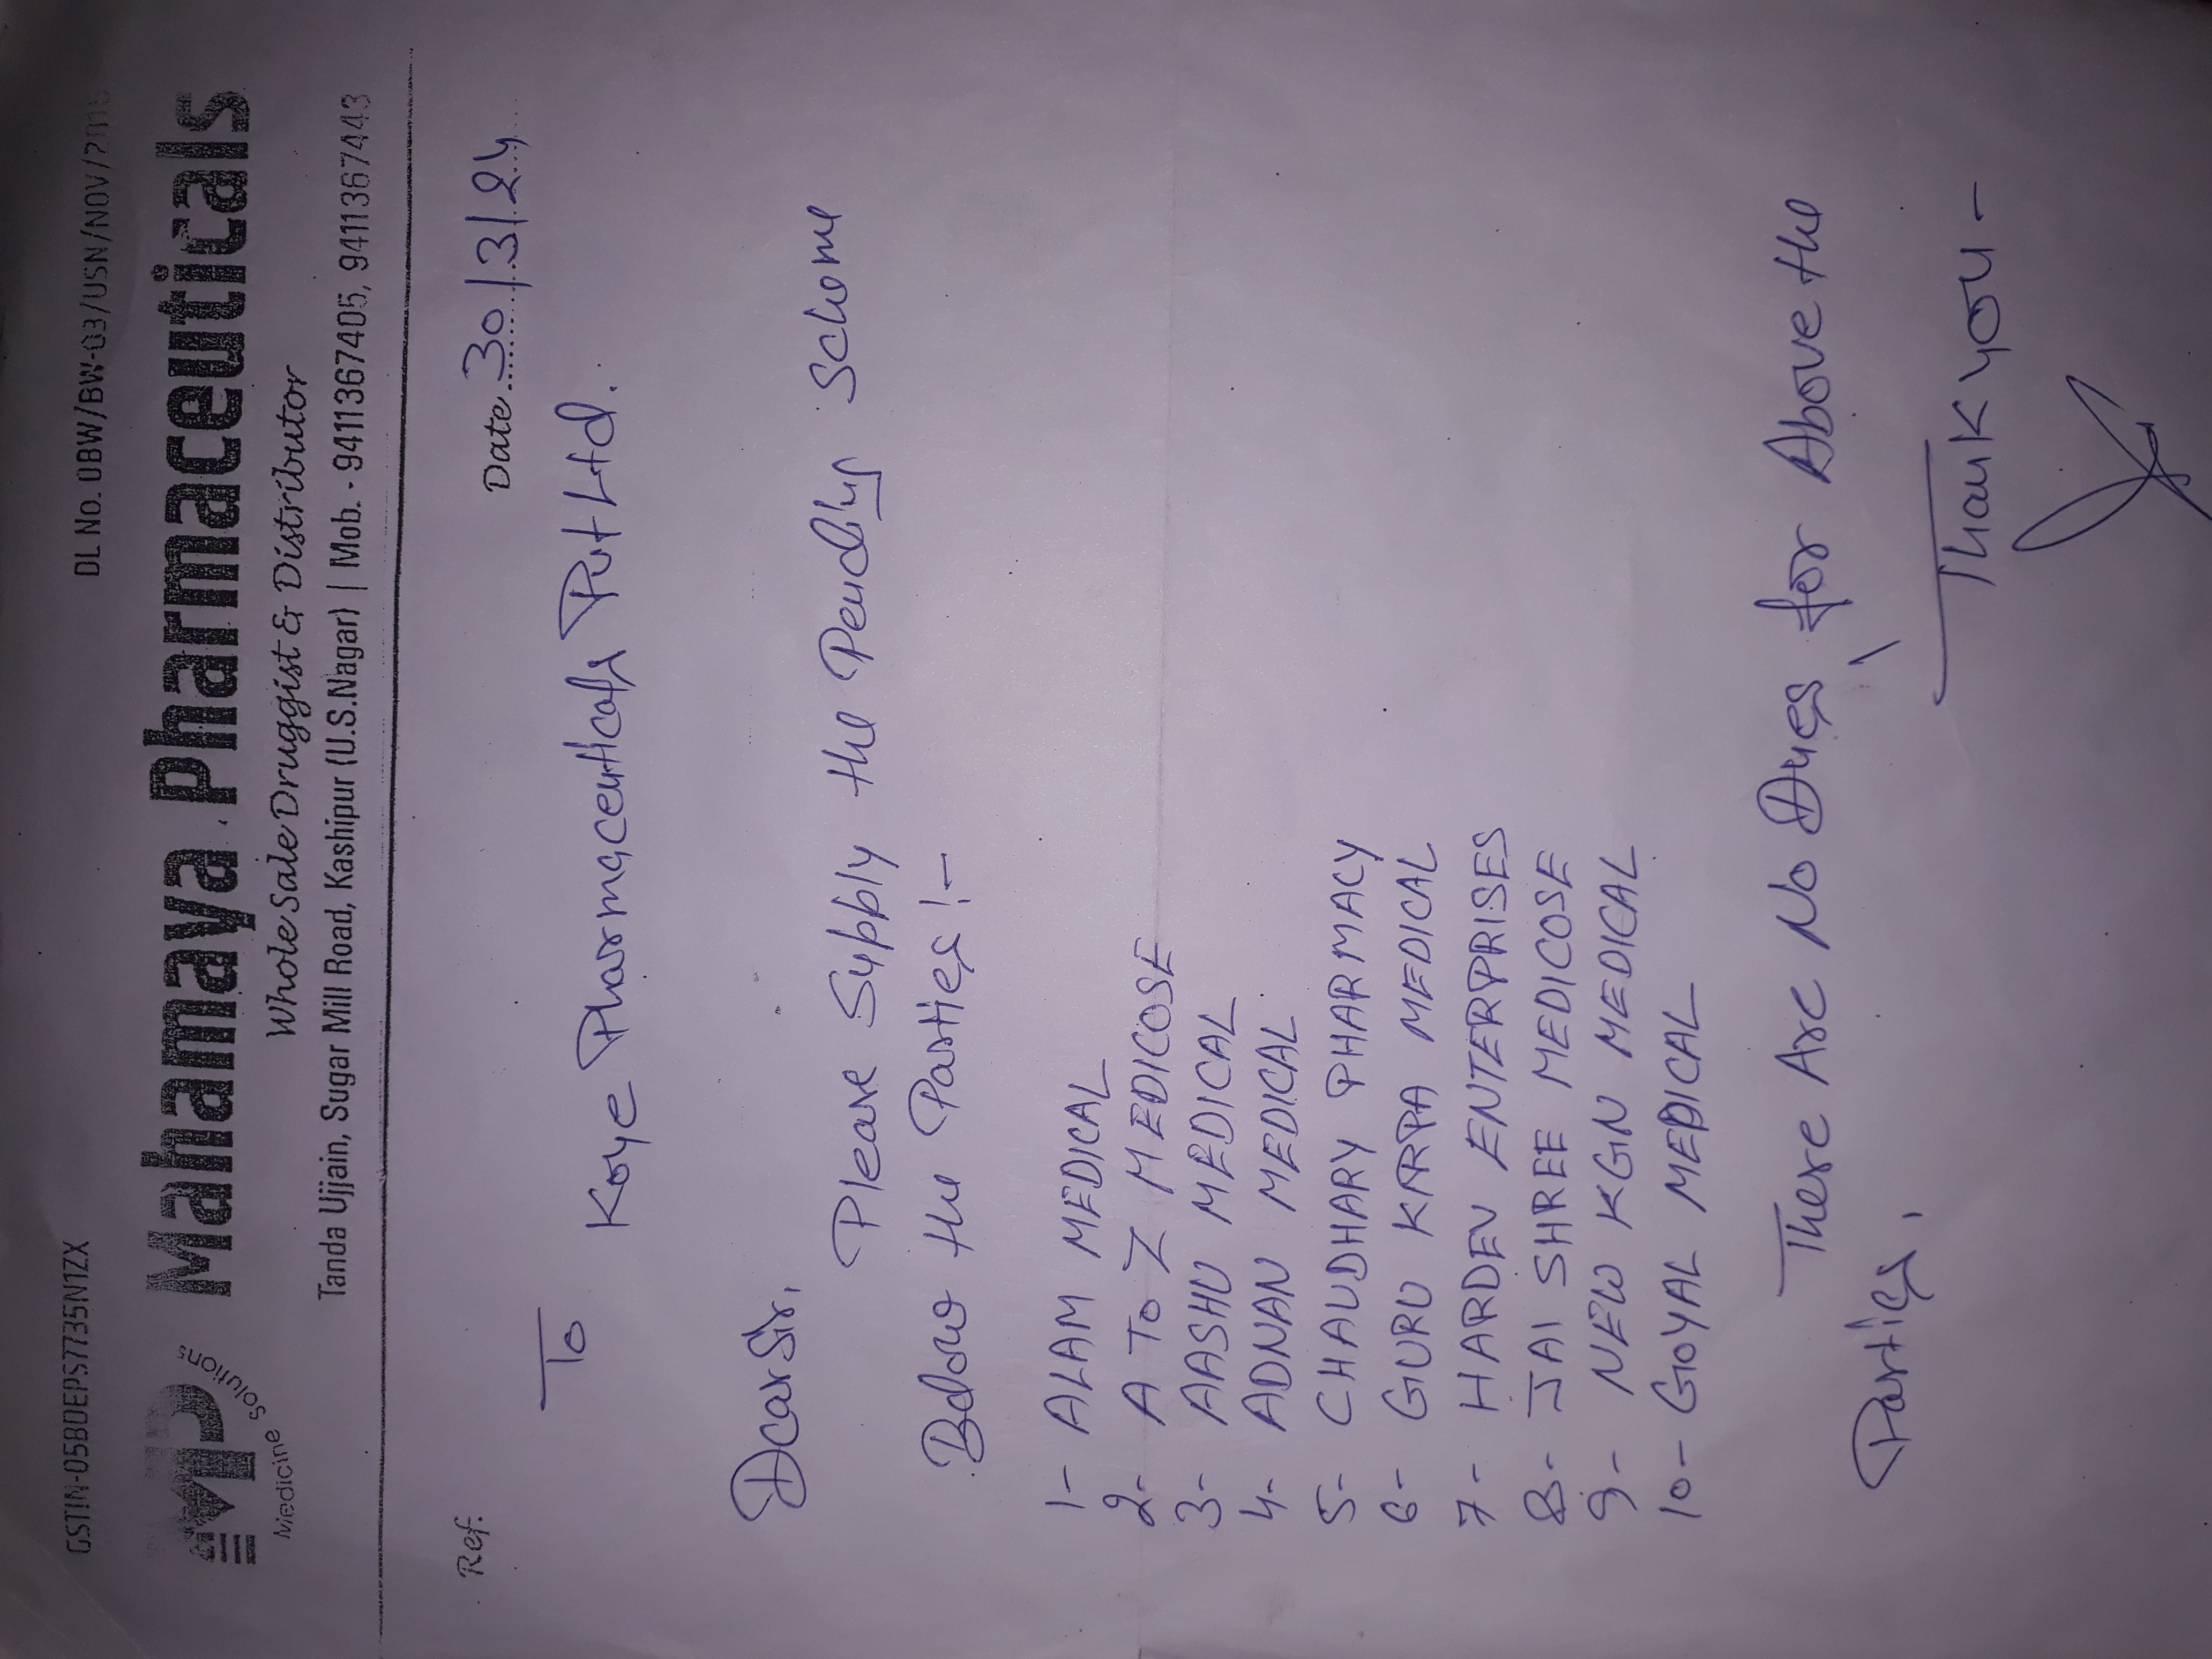 GSTIN-05BDEPS7735N1ZX DL No. OBW/BW-03/USN/NOV/
MP Mahamaya Pharmaceuticals
Medicine Solutions
Whole Sale Druggist & Distributor
Tanda Ujjain, Sugar Mill Road, Kashipur (U.S.Nagar) | Mob. - 9411367405, 9411367443
Ref. Date 30/3/24
To
Koye Pharmaceuticals Pvt Ltd.
Dear Sir,
Please Supply the Pending Scheme
Below the Parties!-
1- ALAM MEDICAL
2- A To Z MEDICOSE
3- AASHU MEDICAL
4- ADNAN MEDICAL
5- CHAUDHARY PHARMACY
6- GURU KARPA MEDICAL
7- HARDEV ENTERPRISES
8- JAI SHREE MEDICOSE
9- NEW KGN MEDICAL
10- GOYAL MEDICAL
There Are No Dues, for Above the
Parties,
Thank you-